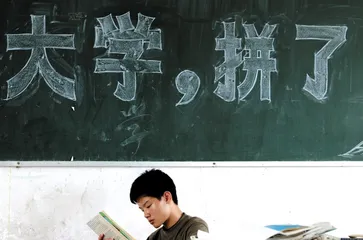 大学，拼了